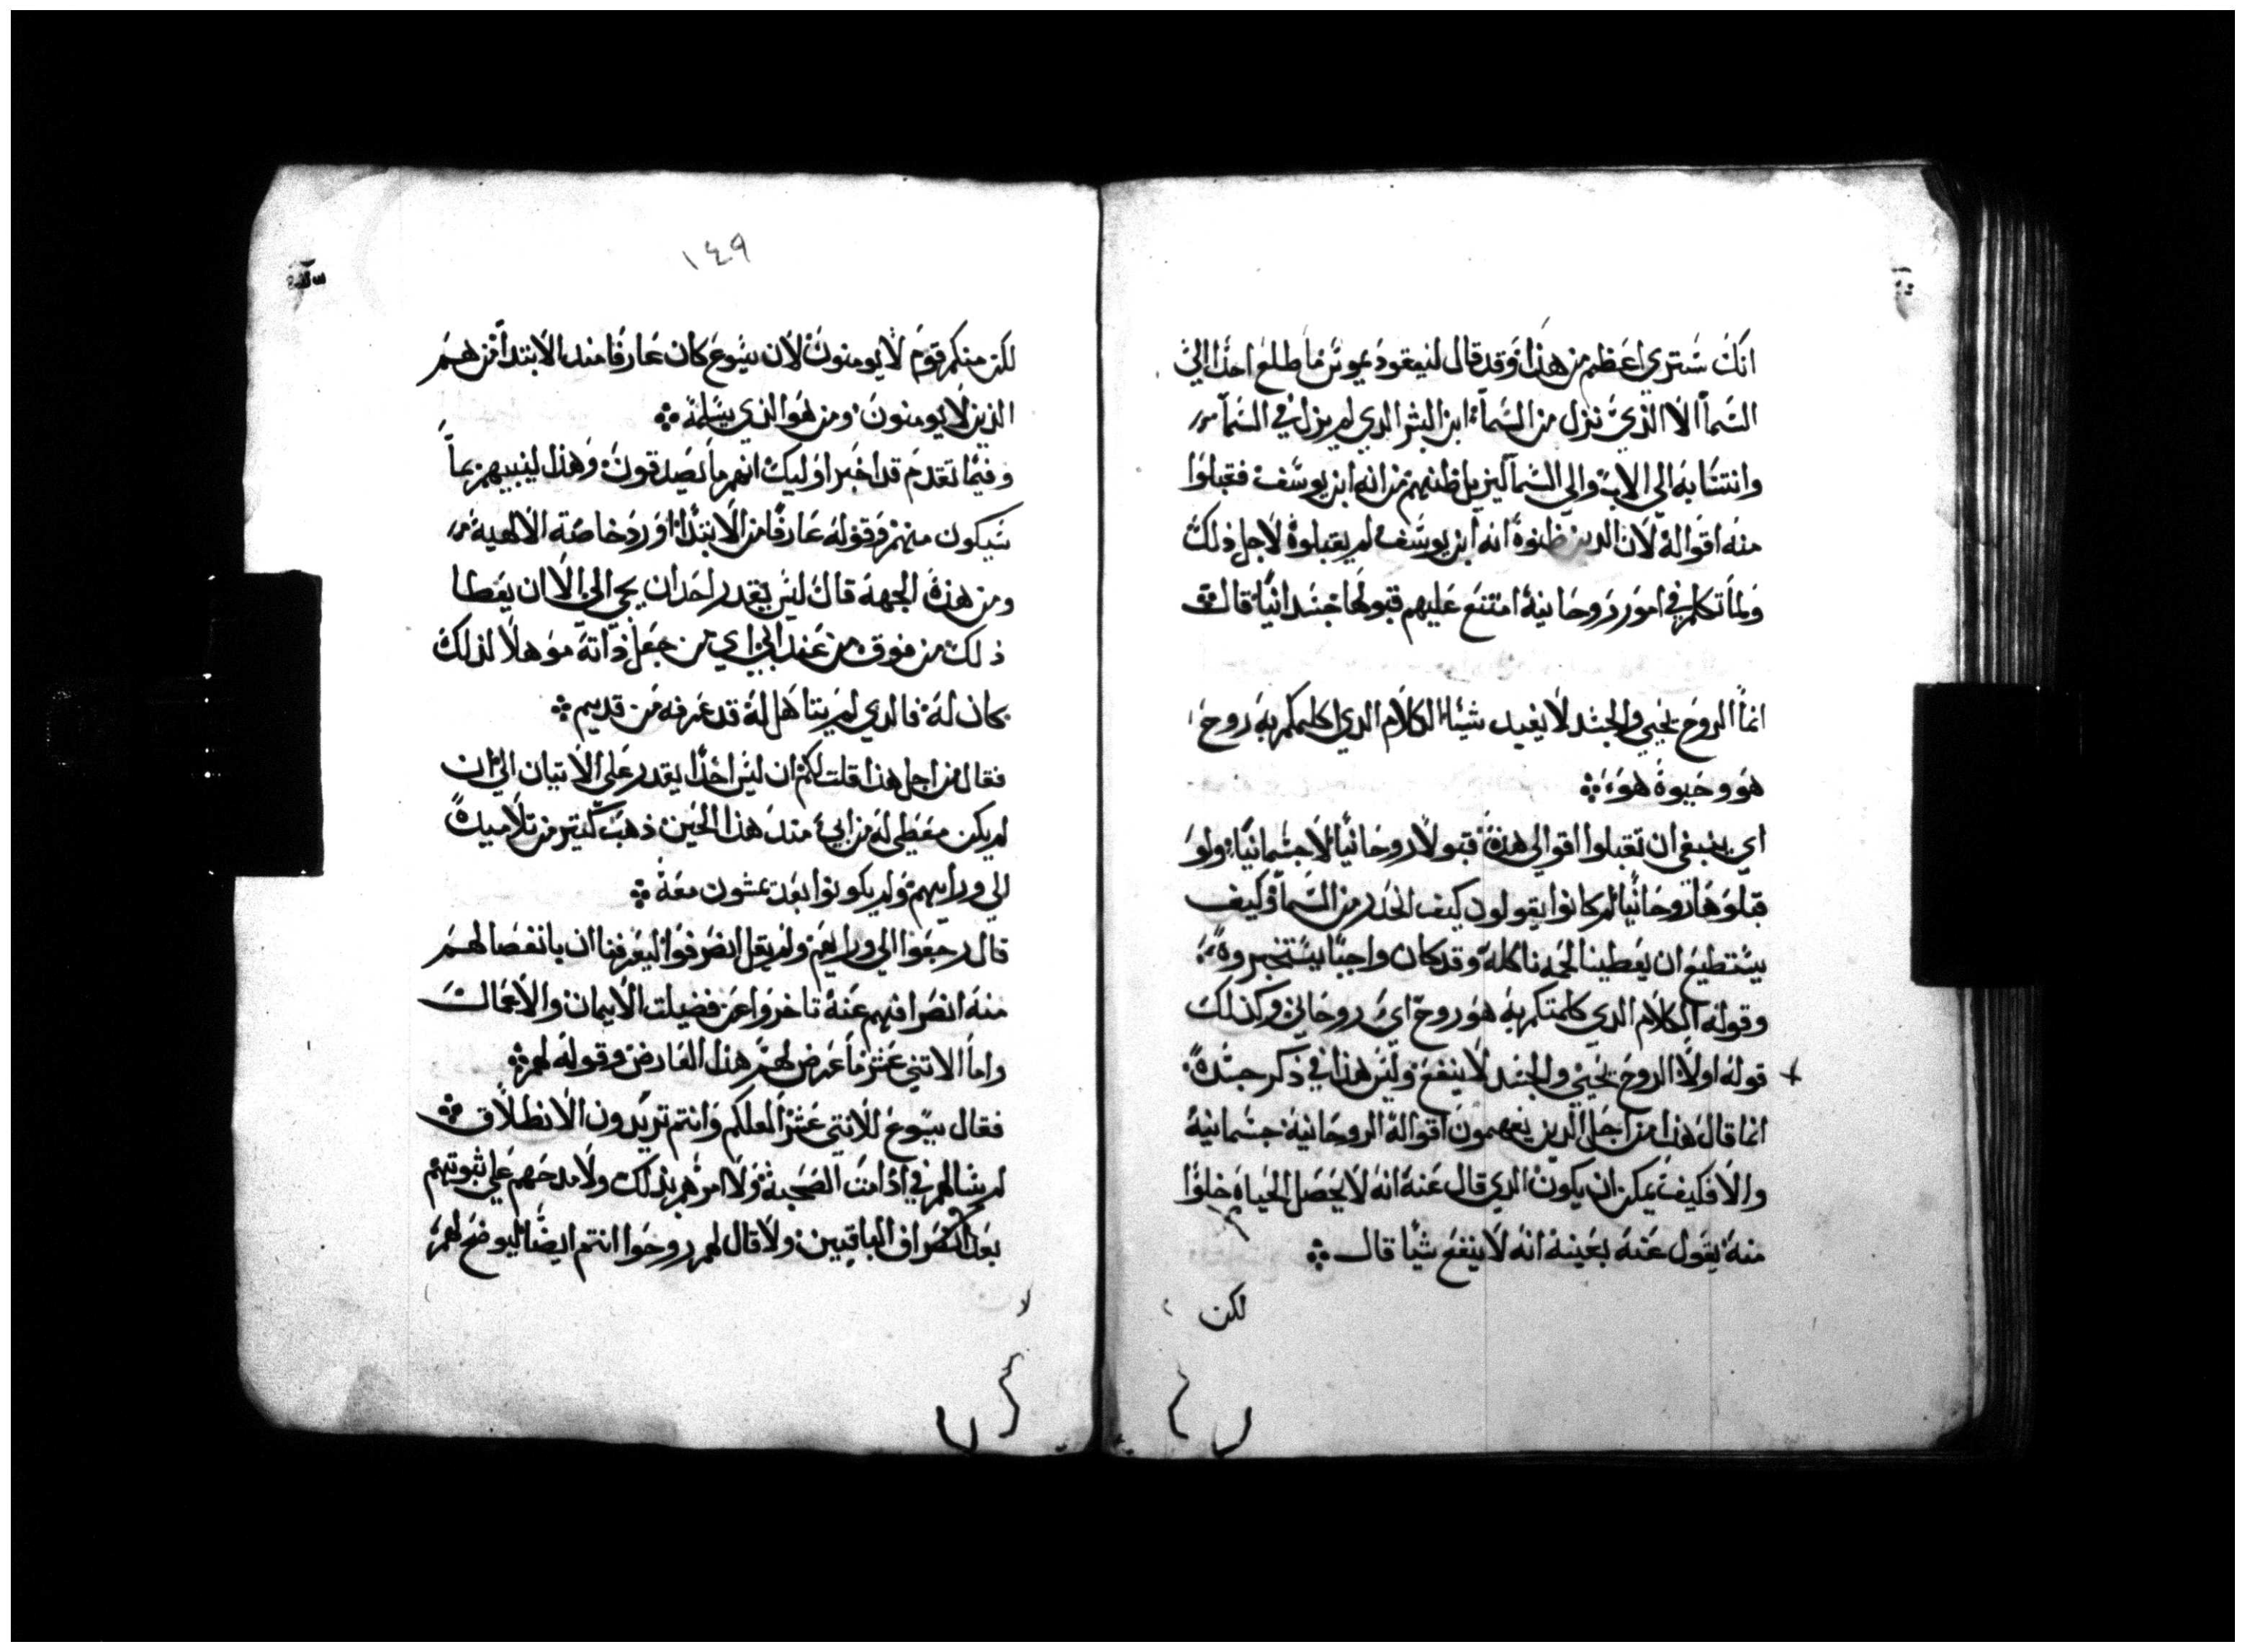 انك ستري اعظم من هذا وقد قال لنيقوديموس ما طلع احدا الي
السما الا الذي نزل من السما ابن البشر الدي لم يزل في السما
وانتسابه الي الاب والي السما ليزيل ظنهم من انه ابن يوسف فقبلوا
منه اقواله لان الدين ظنوه انه ابن يوسف لم يقبلوه لاجل ذلك
ولما تكلم في امور روحانية امتنع عليهم قبولها جسدانيا قال
انما الروح يحيي والجسد لا يفيد شيئا الكلام الدي اكلمكم به روح
هو وحيوة هو
اي ينبغي ان تقبلوا اقوالي هذه قبولا روحانيا لا جسمانيا ولو
قبلوها روحانيا لم كانوا يقولون كيف انحدر من السما وكيف
يستطيع ان يعطينا لحمه ناكله وقد كان واجبا يستخبروه
وقوله الكلام الدي كلمتكم به هو روح اي روحاني وكذلك
قوله اولا الروح يحيي والجسد لا ينفع وليس هذا في ذكر جسده
انما قال هذا من اجل الدين يفهمون اقواله الروحانية جسمانية
والا فكيف يمكن ان يكون الدي قال عنه انه لا يحصل الحياه خلوا
منه يقول عنه بعينه انه لا ينفع شيا قال
لكن
١٤٩
لكن منكم قوم لا يومنون لان يسوع كان عارفا مند الابتدا من هم
الذين لا يومنون ومن هو الذي يسلمه
وفيما تقدم قد اخبر اوليك انهم ما يصدقون وهذا لينبيهم بما
سيكون منهم وقوله عارفا من الابتدا اورد خاصة الالهية
ومن هذه الجهة قال ليس يقدر احد ان يجي الي الا ان يعطا
ذلك من فوق من عند ابي اي من جعل ذاته موهلا لذلك
كان له فالدي لم يتاهل له قد عرفه من قديم
فقال من اجل هذا قلت لكم ان ليس احدا يقدر علي الاتيان الي ان
لم يكن معطي له من ابي مند هذا الحين ذهب كتير من تلاميده
الي ورايهم ولم يكونوا بعد يمشون معه
قال رجعوا الي ورايهم ولم يقل انصرفوا ليعرفنا ان بانفصالهم
منه انصرافهم عنه تاخروا عن فضيلت الايمان والاعمال
واما الاتني عشر ما عرض لهم هذا العارض وقوله لهم
فقال يسوع للاتني عشر العلكم وانتم تريدون الانطلاق
لم شالهم في ادامت الصحبة ولا امرهم بذلك ولا مدحهم علي ثبوتهم
بعد انصراف الباقيين ولا قال لهم روحوا انتم ايضا ليوضح لهم